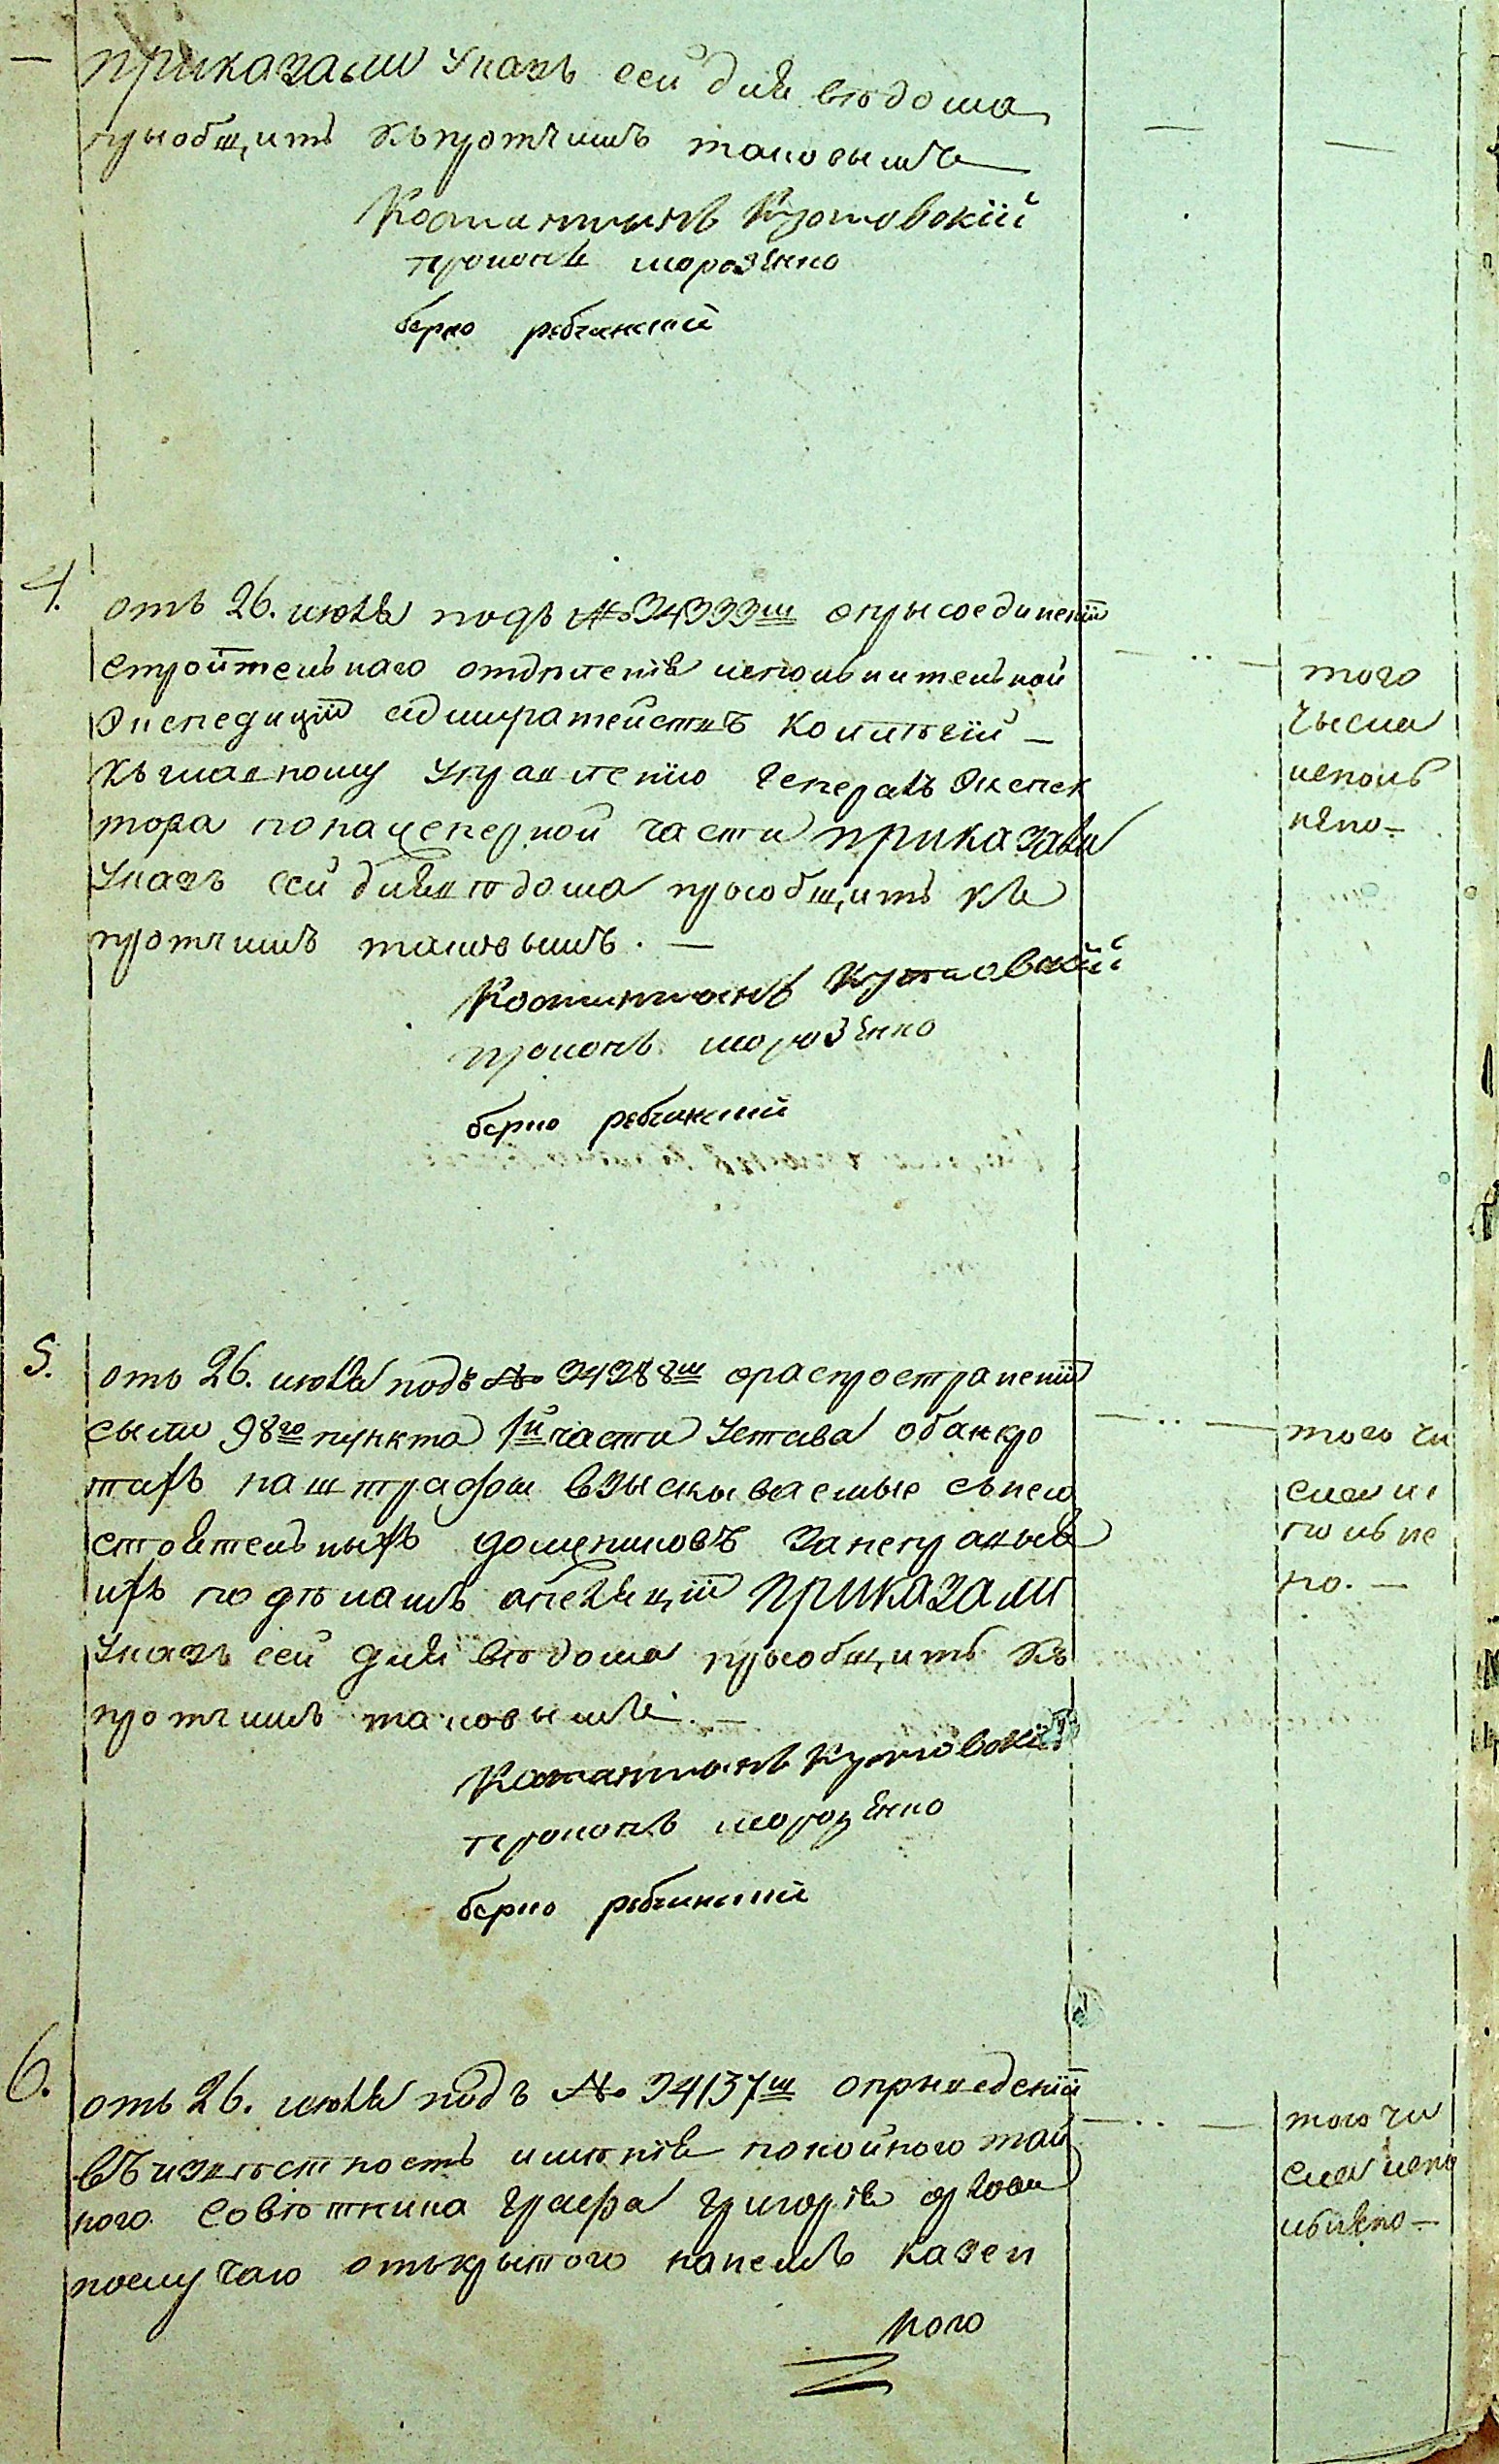 приказали указъ сей для вѣдома
приобщить къ протчимъ таковымъ
Костантинъ Кутовский
прокопъ морозенко
берко рабчинский
4.
отъ 26. июля подъ № 34333м оприсоединении
строителнаго отделения исполнителной
Экспедиции адмиралтействъ Коллегии —
къ главному управлению Генералъ Инспек
тора по инженерной части приказали
указъ сей для вѣдома приобщить къ
протчимъ таковымъ. —
Костантинъ Кутовский
прокопъ морозенко
берко рабчинский
того
числа
исполь
нено —
5.
отъ 26. июля подъ № 34388м ораспространении
силы 98го пункта 1й части Устава обанкро
тахъ на штрафы взыскываемые снесо
стоятельныхъ должниковъ занеправыя
ихъ по дѣламъ апеляции приказали
указъ сей для вѣдома приобщить къ
протчимъ таковымъ. —
Костантинъ Кутовский
прокопъ морозенко
берко рабчинский
того чи
сла ис
полне
но. —
6.
отъ 26. июля подъ № 34137м оприведении
въ извѣстность имѣния покойного тай
ного совѣтника графа григория орлова
послучаю открытого нанемъ казен
ного
того чи
сла испо
лнено —